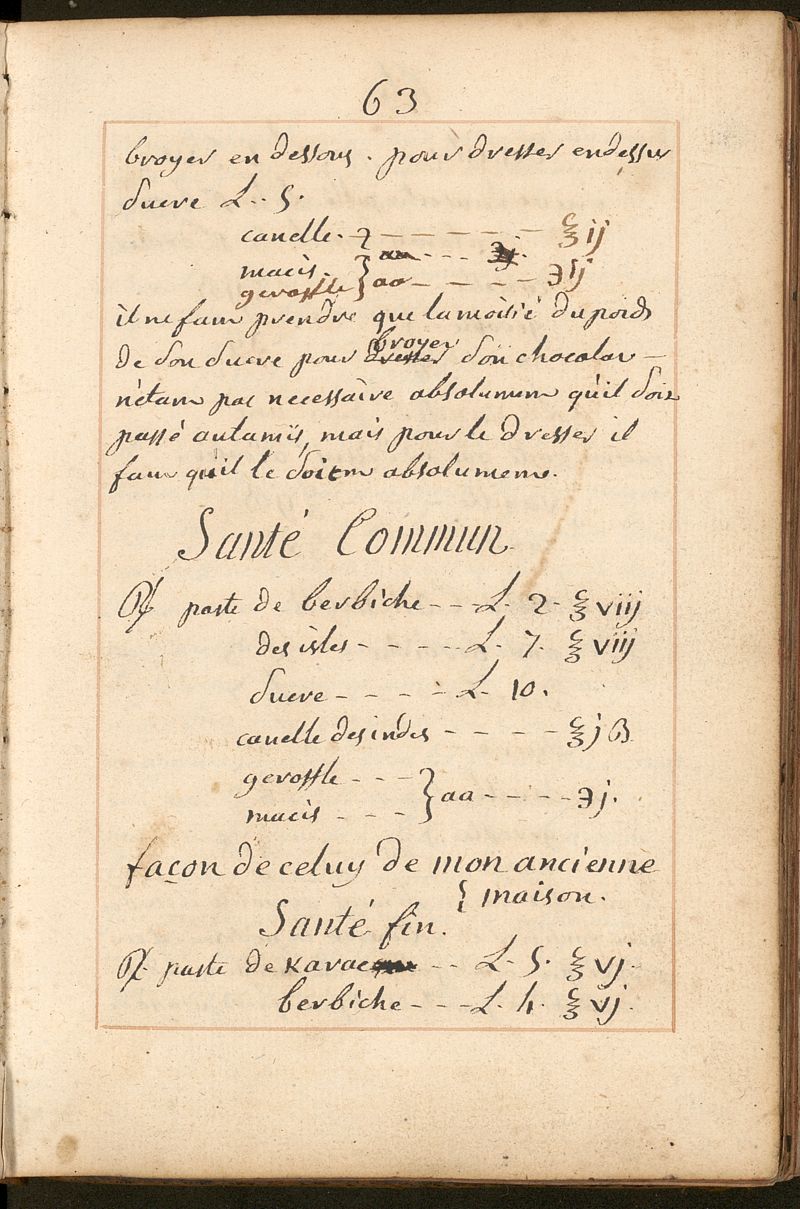 63
broyer en dessous. pour dresser en dessus
sucre L.. 5.
canelle. - - - - - - ℥ ij
macis.
gerosfle } aa - - - - ʒ ij
il ne faut prendre que la moitié du poids
de son sucre pour broyer son chocolat -
n'étant pas necessaire absolument qu'il soit
passé au tamis, mais pour le dresser il
faut qu'il le soit absolument.
Santé Commun
℞ paste de berbiche - - - L. 2. ℥ viij
des isles - - - - - L. 7. ℥ viij
sucre - - - - - L. 10.
canelle des indes - - - - - ℥ j ß
gerosfle - - -
macis - - - } aa - - - - - ʒ j.
façon de celuy de mon ancienne
{ maison.
Santé fin.
℞ paste de Karac - - L. 5. ℥ vj.
berbiche - - - L. 4. ℥ vj.